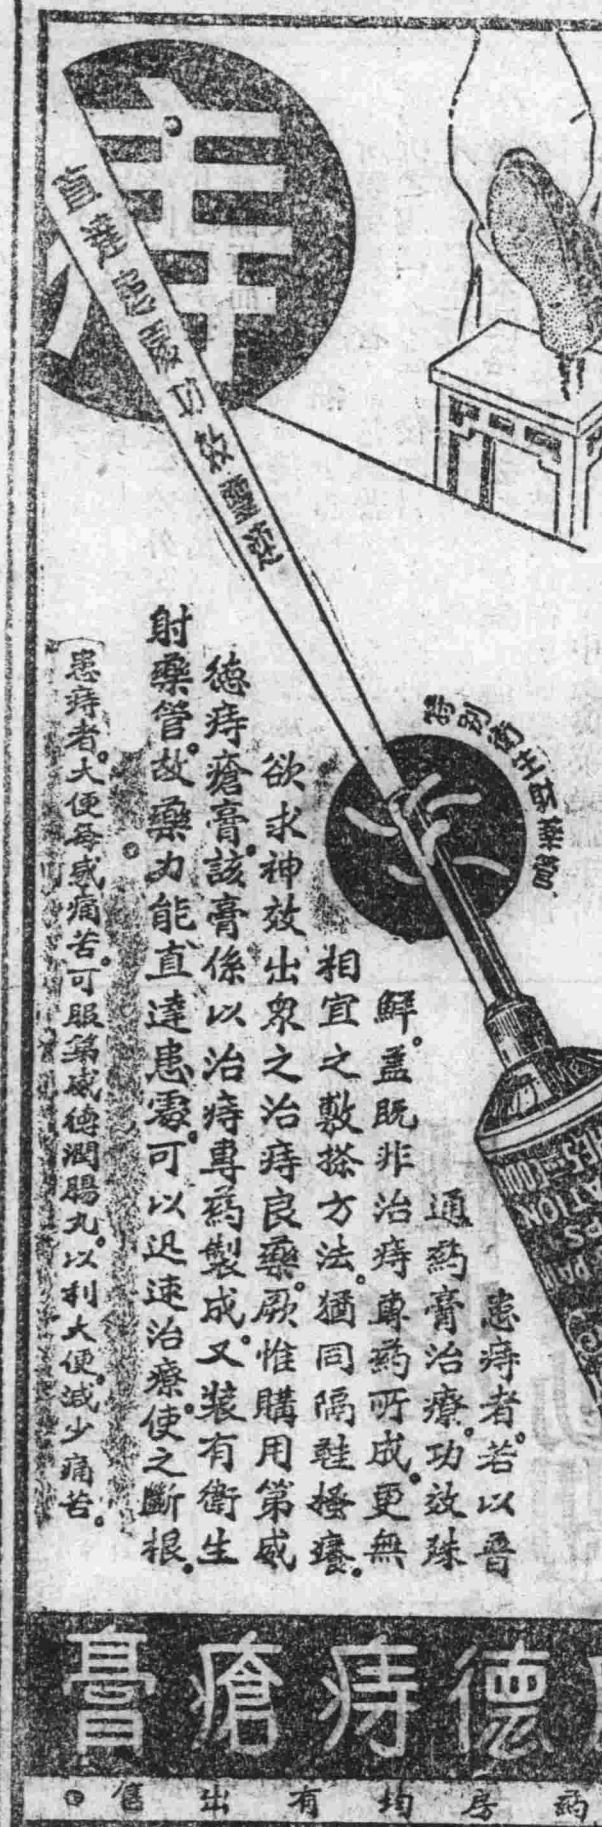 痔
直達患處功效靈速
特別衛生射藥管
患痔者。若以普
通葯膏治療。功效殊
鮮。蓋既非治痔專葯所成。更無
相宜之敷搽方法。猶同隔鞋搔癢。
欲求神效出眾之治痔良藥。厥惟購用第威
德痔瘡膏。該膏係以治痔專葯製成。又裝有衛生
射藥管。故藥力能直達患處。可以迅速治療。使之斷根。
(患痔者。大便每感痛苦。可服第威德潤腸丸。以利大便。減少痛苦。
PAIN
德痔瘡膏
葯房均有出售。